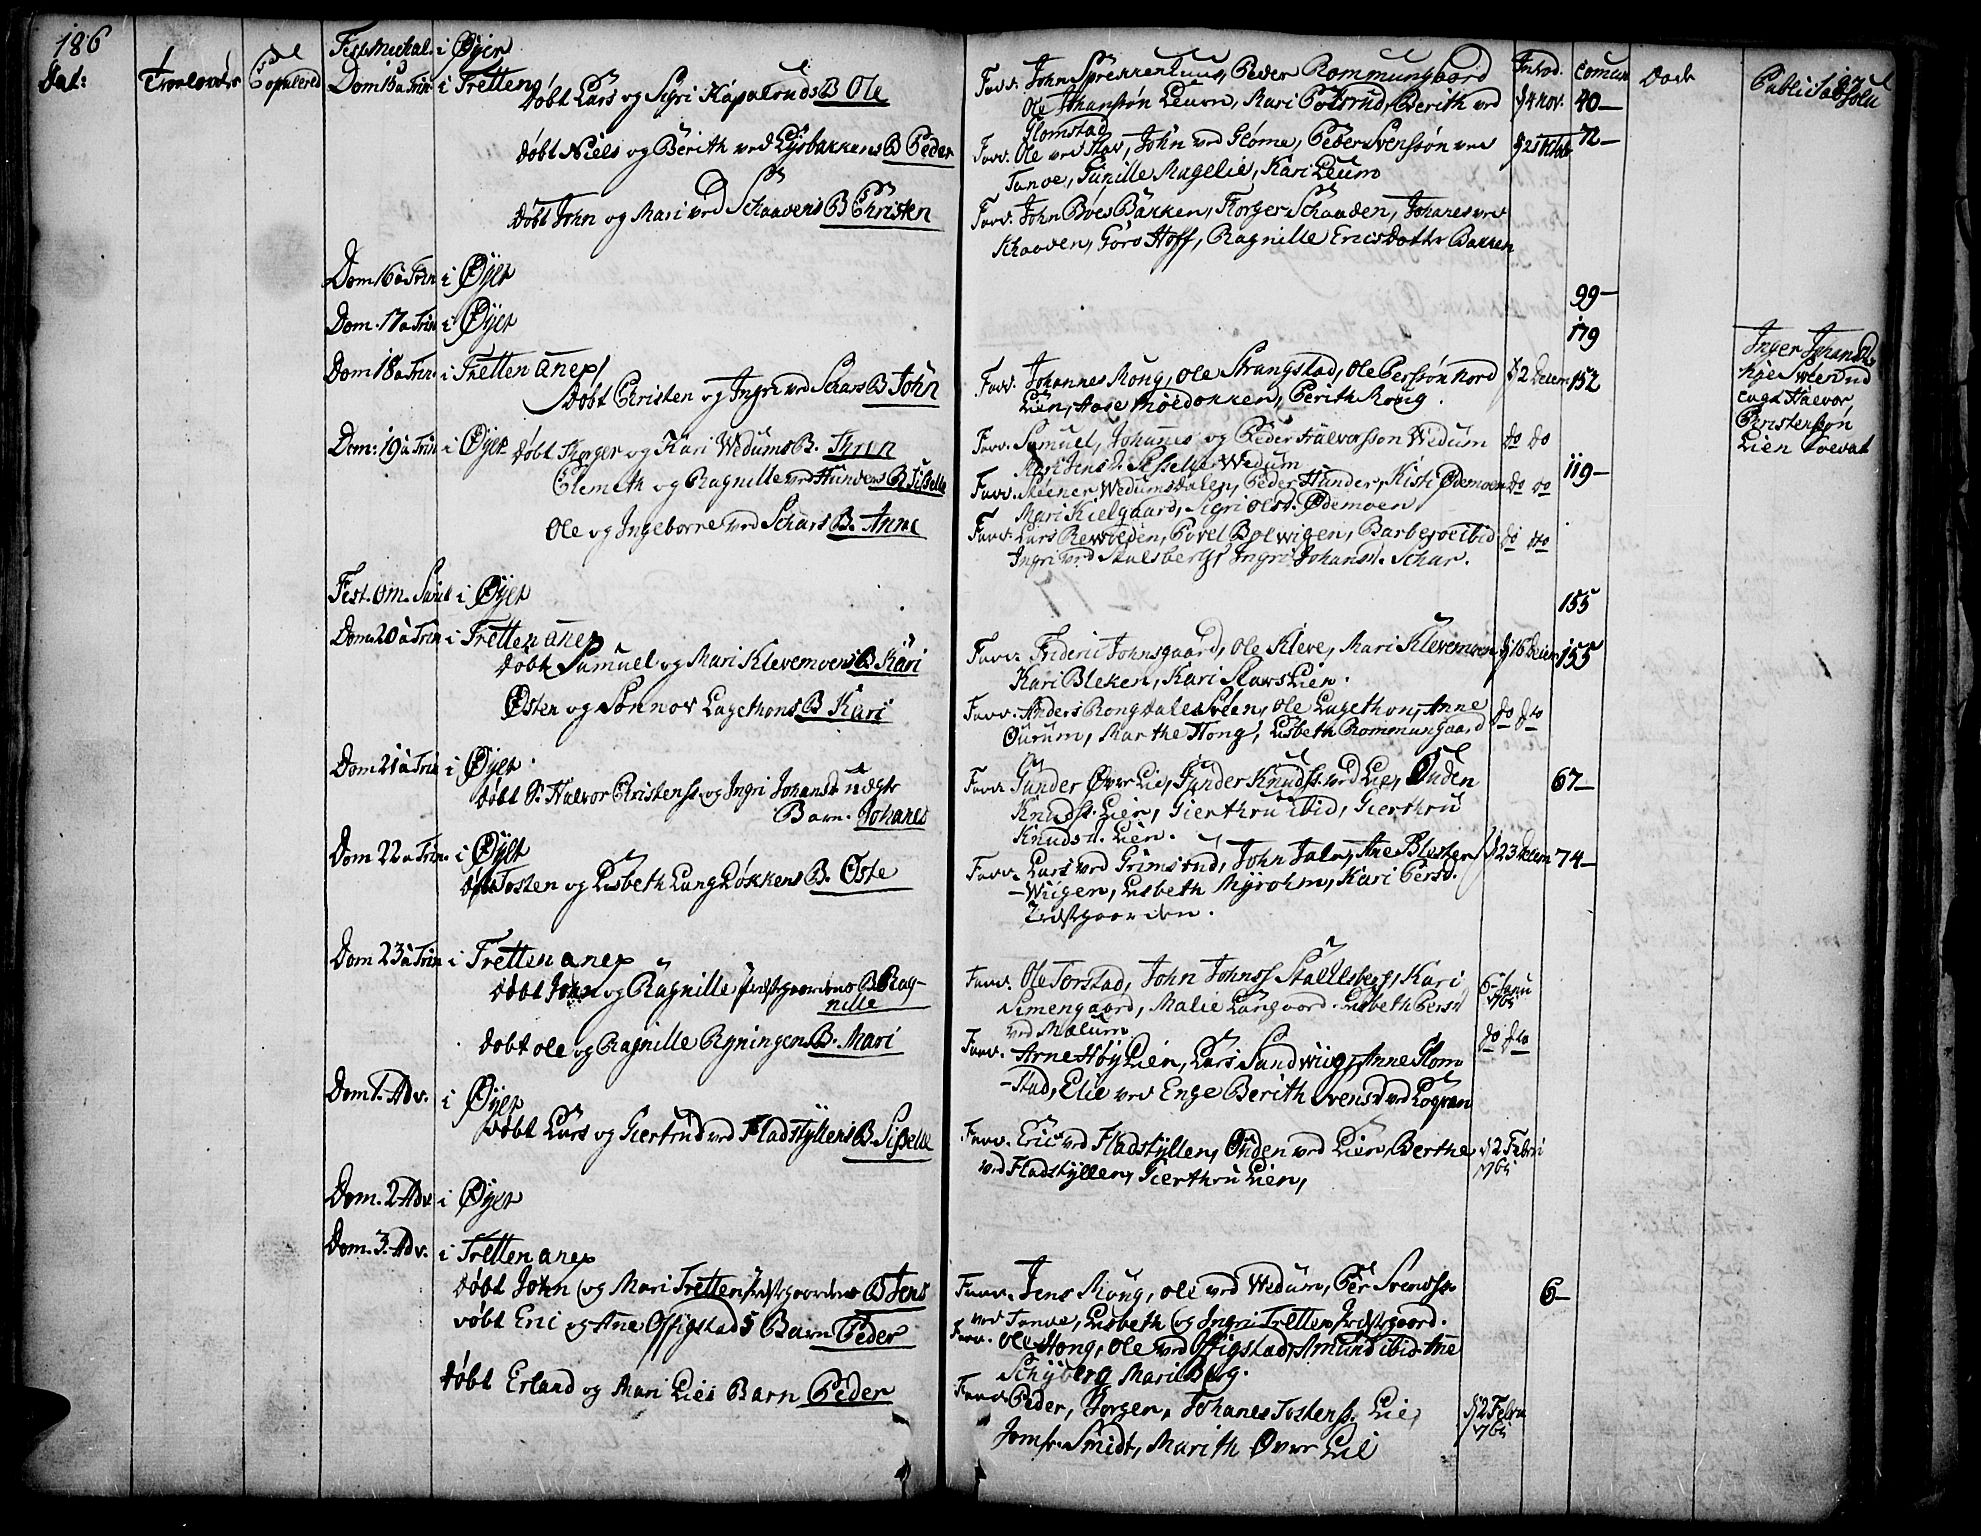 186
Dat: Troelovede Copulered
Fest. Michal. i Øyer
Dom 15 a Trin i Tretten
Døbt Lars og Sigri Kapalruds B Ole
Døbt Niels og Berith ved Lysbakkens B Peder
Døbt John og Mari ved Skaadens B Christen
Dom 16 a Trin i Øyer
Dom. 17 a Trin i Øyer
Dom 18 a Trin. i Tretten anex
Døbt Christen og Ingri ved Schars B John
Dom: 19 a Trin i Øyer Døbt Torger og Kari Wedums B. Thron
Clemeth og Ragnille ved Hunders B Sisselle
Ole og Ingeborre ved Schars B. Anne
Fest. Om. Sanct i Øyer
Dom 20 a Trin i Tretten anex
Døbt Samuel og Mari Klevemoens B Kari
Østen og Sønnov Lagethons B Kari
Dom 21 a Trin i Øyer
Døbt S. Halvor Christenss. og Ingri Johansd. uægte
Barn. Johanes
Dom 22 a Trin. i Øyer
Døbt Tosten og Lisbeth Lang Løkkens B. Oste
Dom 23 a Trin i Tretten anex
Døbt John og Ragnille Prestgaardens B Rag-
nille
Døbt Ole og Ragnille Rynningens B. Mari
Dom 1. Adv. i Øyer
Døbt Lars og Giertrud ved Fladstyllens B. Sisselle
Dom. 2 Adv i Øyer
Dom. 3. Adv. i Tretten anex
Døbt John og Mari Tretten Prestgaardens B Jens
Døbt Eric og Ane Offigstads Barn Peder
Døbt Erland og Mari Lies Barn Peder
187
Introd. Comun Døde Public: absolu
Fadd. John Sprekkenhuus, Peder Rommungaard
Ole Johanssøn Leurn, Mari Polsrud, Berith ved
Glomstad
d 4 Nov. 40—
Fadd. Ole ved Hav, John ved Glome, Peder Svenssøn ved
Tande, Gunille Magelie, Kari Leurn
d 21 Octobr 72—
Fadd. John Boes Bakken, Torger Schaaden, Johanes ved
Schaaden, Goro Hoff, Ragnille Ericsdatter Bakken
99—
179
Fadd. Johannes Mong, Ole Strangstad, Ole Perssøn Nord
Lien, Aase Møedokken, Berith Mong.
d 2 Decem 152
Inger Johansd.
Christenssøn
Lien
Fadd. Samuel, Johannes og Peder Halvorssøn Wedum
Mari Jens d. Sisselle Wedum
do do
119—
Fadd. Steener Wedumsdalen, Peder Hunder, Kisti Ødemoen
Mari Kielgaard, Sigri Olsd. Ødemoen
do do
Fadd. Lars Rewolden, Povel Bolwigen, Barbejoe ibid
Ingri ved Stalsberg, Ingri Johansd. Schar.
do do
155
Fadd. Frideric Johnsgaard, Ole Kleve, Mari Klevemoen
Kari Bleken, Kari Stavs Lien.
d 16 Decem 155
Fadd. Anders Rongdale Sveen, Ole Lagethon, Anne
Ourum, Marthe Hong, Lisbeth Rommungaard
do do
Fadd. Gunder Over Lie, Gunder Knudss. ved Lie, Ouden
Knudss. Lien, Gierthru ibid, Gierthru
Knuds d. Lien.
67—
Fadd. Lars ved Grimsrud, John Jale, Ane Blester
Wiigen, Lisbeth Myrohm, Kari Persd.
Prestgaarden.
d 23 Decem 74—
Fadd. Ole Torstad, John Johnss Stallsberg, Kari
Simengaard, Malie Langaard. Lisbeth Persd
ved Mælum
6 Janu
1765
Fadd. Arne Høy Lien, Lars Sandwiig, Anne Glom
-stad, Elie ved Enge Berith Svensd ved Logven
do do
Fadd. Eric ved Fladstyllen, Ouden ved Lien, Berthe
ved Fladstyllen, Gierthru Lien,
d 2 Febri
1765
Fadd. Jens Mong, Ole ved Wedum, Per Svendss.
ved Tande, Lisbeth og Ingri Tretten Prestgaard.
6—
Fadd. Ole Hong, Ole ved Offigstad, Amund ibid. Ane
Schyberg Mari Berg.
Fadd. Peder, Torgen, Johanes Tostenss. Lie,
Jomfr. Smidt, Marith Over Lie
d 2 Febru
1765